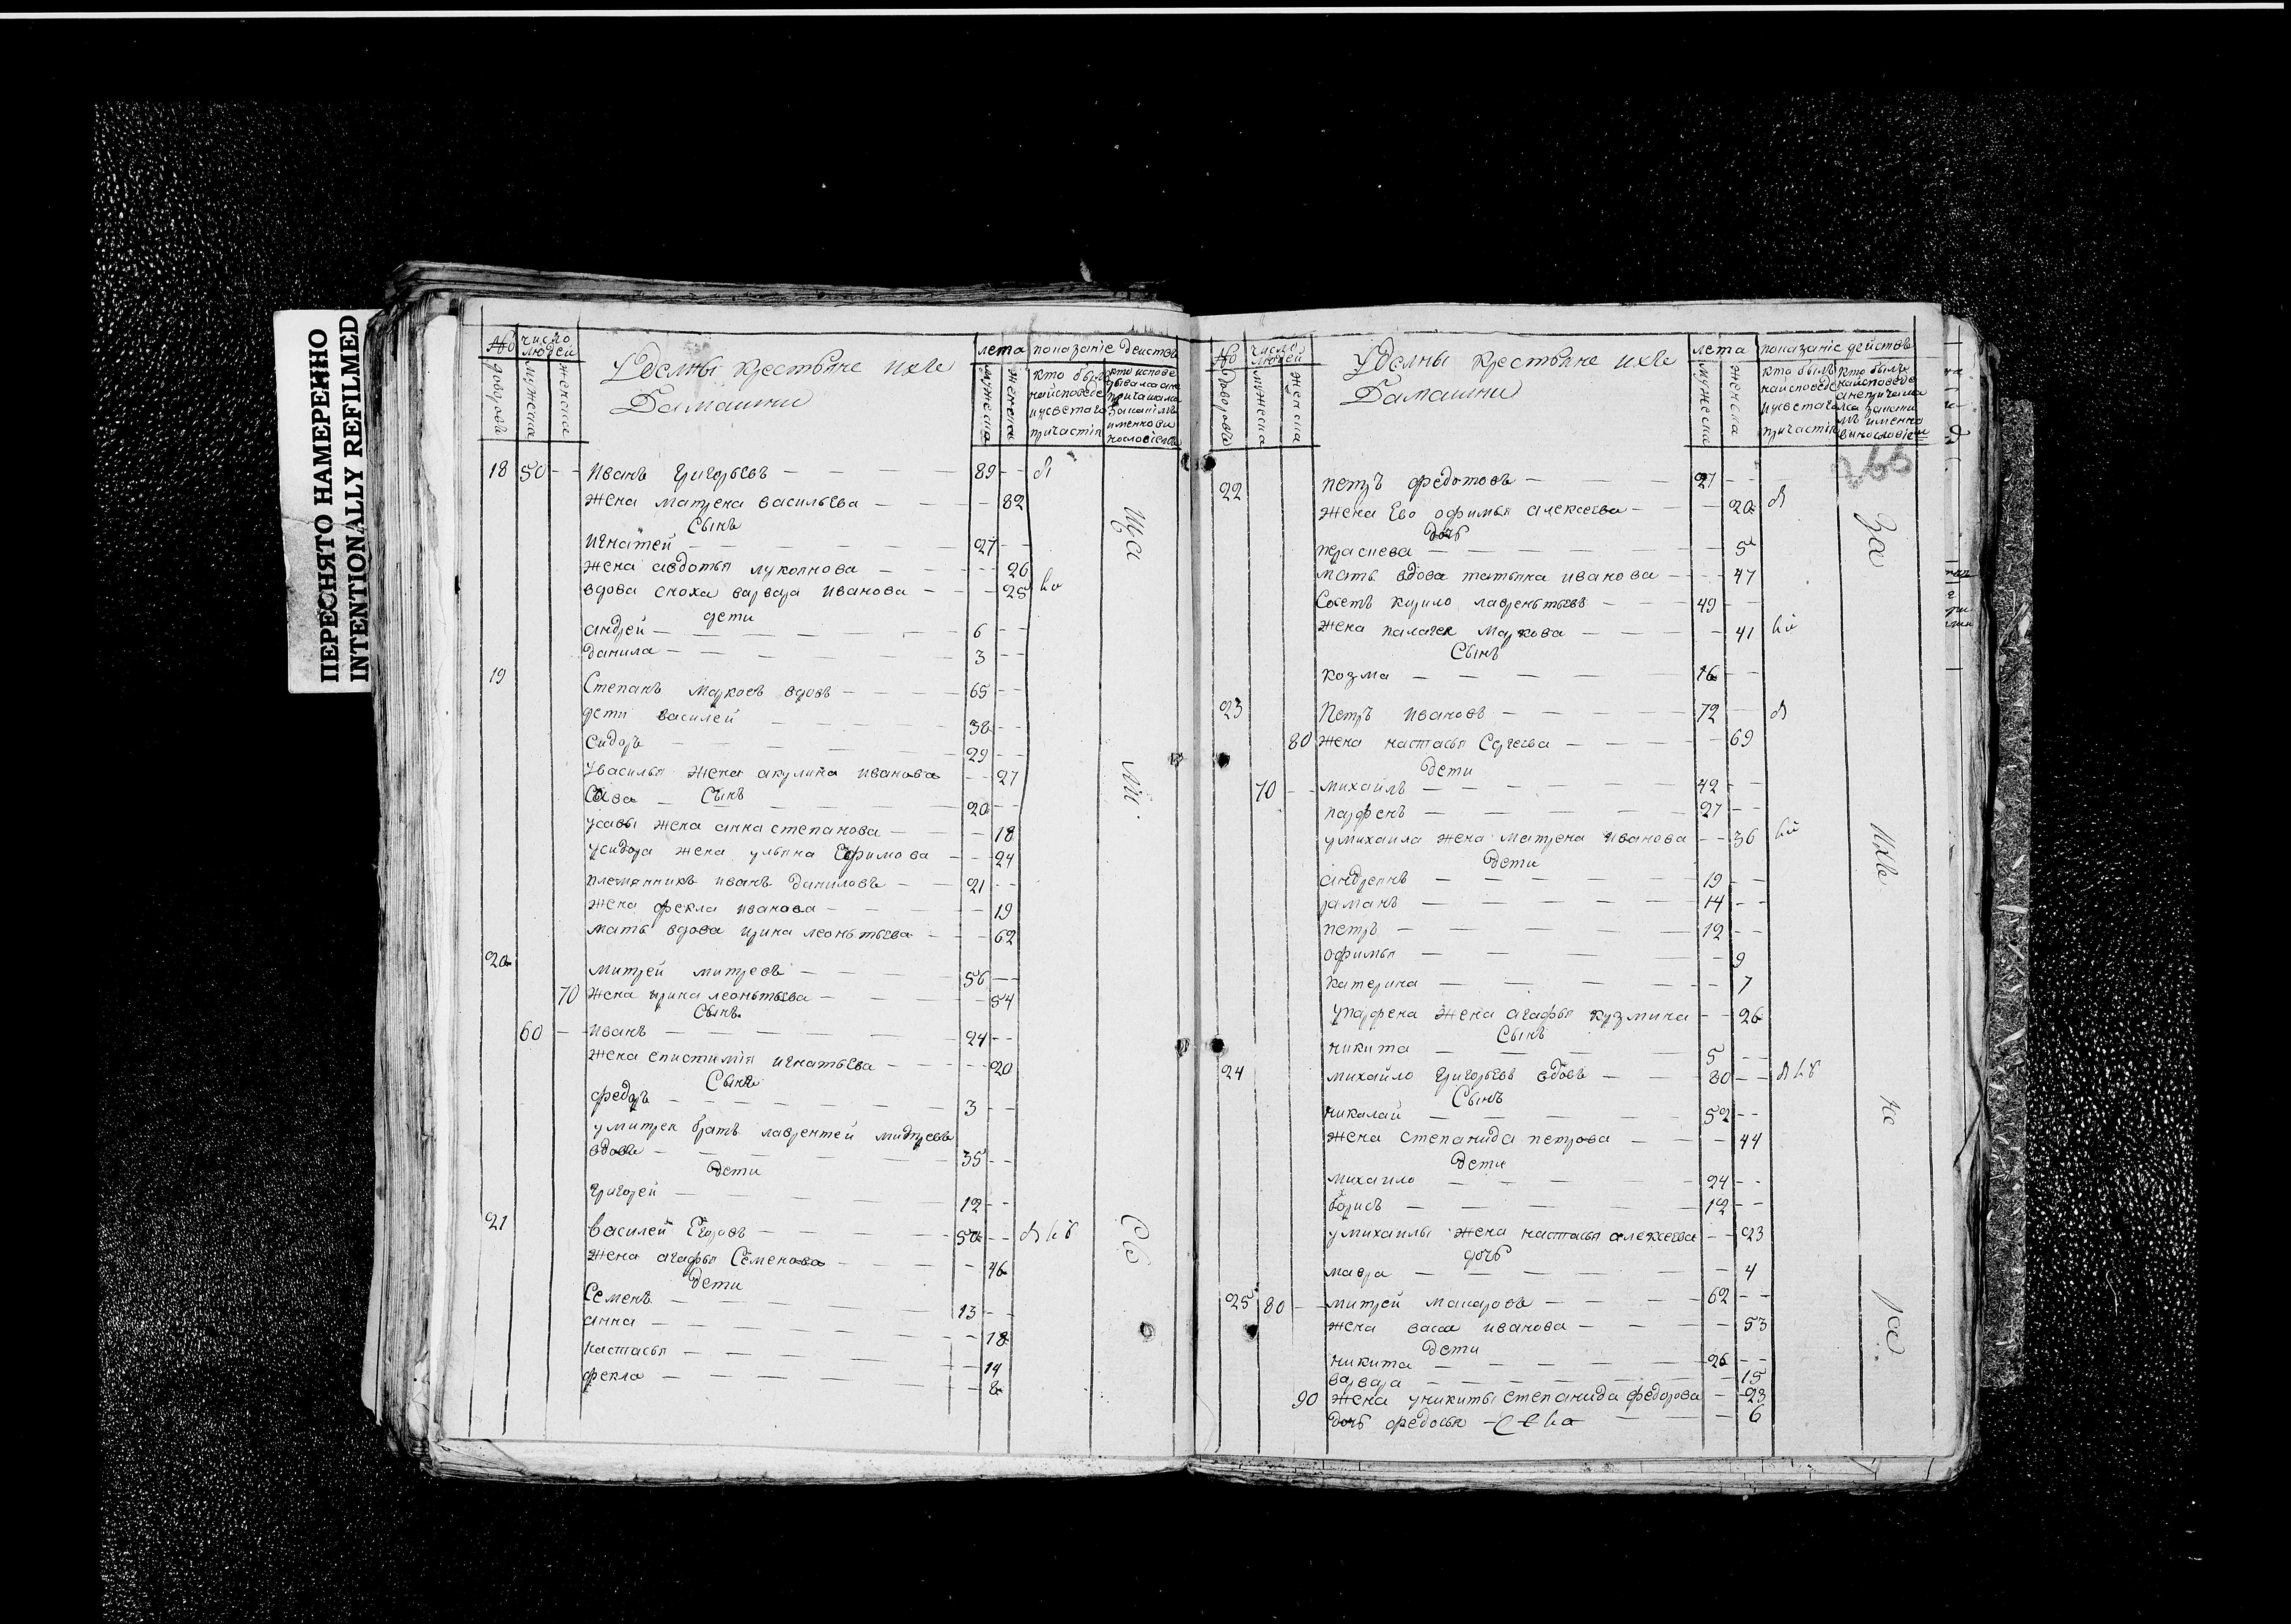 ПЕРЕСНЯТО НАМЕРЕННО
INTENTIONALLY REFILMED
№ число людей
дворовъ мужеска женска
Уделны крестьяне ихъ
Дамашни
лета показание действъ
мужеска женска
18 50 - - Иванъ Григорьевъ — — — — 89 - -
жена матрена васильева — — — - 82
Сынъ
игнатей — — — — — — 27 - -
жена авдотья лукоянова — — - - 26
вдова сноха варвара иванова — — - - 25
дети
андрей — — — — — — 6 - -
данила — — — — — — 3 - -
19
Степанъ Марковъ вдовъ — — — — 65 - -
дети василей — — — — 38 - -
сидоръ — — — — — — 29 - -
увасилья жена акулина иванова - - 27
Сынъ
Сава — — — — — 20 - -
усавы жена анна степанова — — - 18
усидора жена ульяна Ефимова — - - 24
племянникъ иванъ даниловъ — — 21 - -
жена фекла иванова — — — — - 19
мать вдова ирина леоньтьева — - - 62
20
митрей митревъ — — — — 56 - -
70 жена ирина леоньтьева — — — - 54
Сынъ
60 - - иванъ — — — — — 24 - -
жена епистимия игнатьева — — - - 20
Сынъ
федоръ — — — — — — 3 - -
умитрея братъ лаврентей митревъ
вдовъ — — — — — — 35 - -
дети
григорей — — — — — 12 - -
21
василей Егоровъ — — — — 50 - -
жена агафья Семенова — — — - 46
дети
Семенъ — — — — — — 13 - -
анна — — — — — — - 18
настасья — — — — — - - 14
фекла — — — — — — - 8
№ число людей
дворовъ мужеска женска
Уделны крестьяне ихъ
Дамашни
лета показание действъ
мужеска женска
265
22
петръ федотовъ — — — 27 - -
жена Ево офимья алексеева — — - 20
дочь
праскева — — — — — — - 5
мать вдова татьяна иванова — - - 47
кирило лавреньтьевъ — — 49 - -
жена палагея Маркова — — — - 41
Сынъ
козма — — — — — 16 - -
23
Петръ ивановъ — — — — 72 - -
80 жена настасья Сергеева — — — - 69
дети
70 - - михайлъ — — — — — 42 - -
парфенъ — — — — — 27 - -
умихаила жена матрена иванова - - 36
дети
андреянъ — — — — — 19 - -
раманъ — — — — — 14 - -
петръ — — — — — 12 - -
офимья — — — — — - 9
катерина — — — — - - 7
упарфена жена агафья кузмина - - 26
Сынъ
никита — — — — 5 - -
24
михайло григорьевъ вдовъ — — 80 - -
Сынъ
николай — — — — — 52 - -
жена степанида петрова — — - 44
дети
михаило — — — — 24 - -
борисъ — — — — — 12 - -
умихаилы жена настасья алексеева - - 23
дочь
мавра — — — — — - 4
25 80 - митрей макаровъ — — — 62 - -
жена васа иванова — — — - 53
дети
никита — — — — — 26 - -
варвара — — — — — - 15
90 жена уникиты степанида федорова - 23
дочь федосья — — — - 6